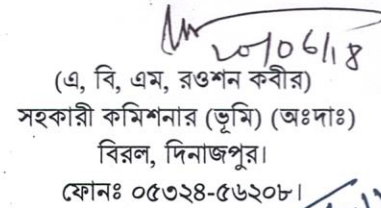 20/06/18
(এ, বি, এম, রওশন কবীর)
সহকারী কমিশনার (ভূমি) (অঃদাঃ)
বিরল, দিনাজপুর।
ফোনঃ ০৫৩২৪-৫৬২০৮।